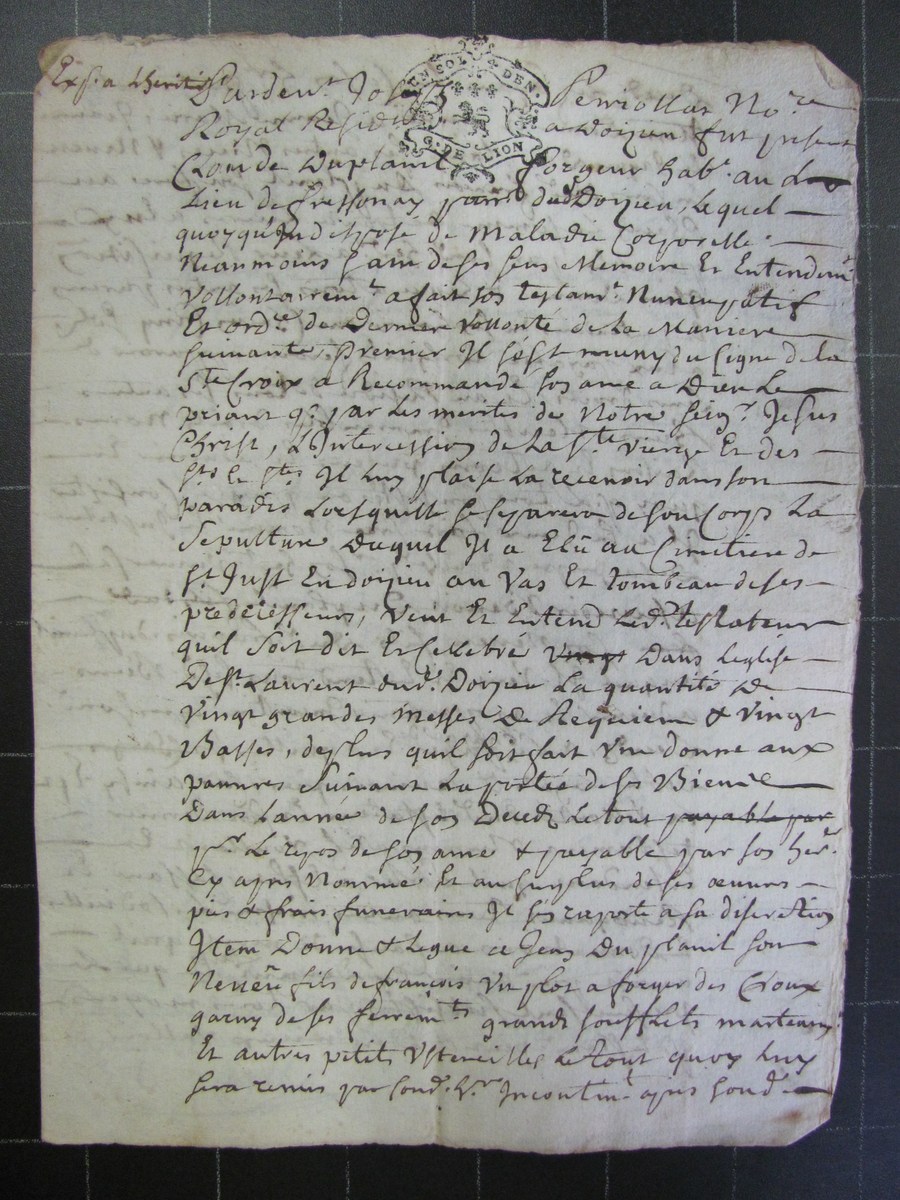 Exp. a lheritier
Pardevt. Jos Perriollat Nore
Royal Reside a Doizieu fut present
UN SOL 4 DEN.
G. DE LION
Cloude Duplanil forgeur habt. au d
Lieu de fressonay parr dud Doizieu, Lequel
quoyqu'Indisposé de Maladie Corporelle
Neanmoins sain de ses sens Memoire Et Entendemt
vollontairemt. a fait son testamt. Nuncupatif
Et ordce de Derniere vollonté de la Maniere
suivante. Premier Il s'est muny du signe de la
Ste Croix a Recommandé son ame a Dieu Le
priant q. par Les merites de Notre seigr. Jesus
Christ, L'Intercession de La Ste vierge Et des
Sts. Et Stes Il Luy plaise La recevoir dans son
paradis Lorsquelle se separera de son Corps La
Sepulture Duquel Il a Elû au Cimetiere de
St. Just En doizieu au Vas Et tombeau de ses
predecesseurs, Veut Et Entend Led. testateur
quil soit dit Et Cellebré vingt Dans Leglise
De St. Laurent dud. Doizieu La quantité De
Vingt grandes Messes De Requiem & Vingt
Basses, deplus quil soit fait Une donne aux
pauvres Suivant La portée de ses Biens
Dans L'année de son Decedz Le tout payable par
pr. Le repos de son ame & payable par son her.
Cy apres Nommé Et au surplus de ses œuvres
pies & frais funeraires Il sen raporte a sa discretion
Item Donne & Legue a Jean Duplanil son
Neveu fils de françois Un plot a forger des Cloux
garny de ses ferremts grands soufflets marteaux
Et autres petits Ustencilles Le tout quoy Luy
sera remis par sond. hr. Incontint. apres sond.